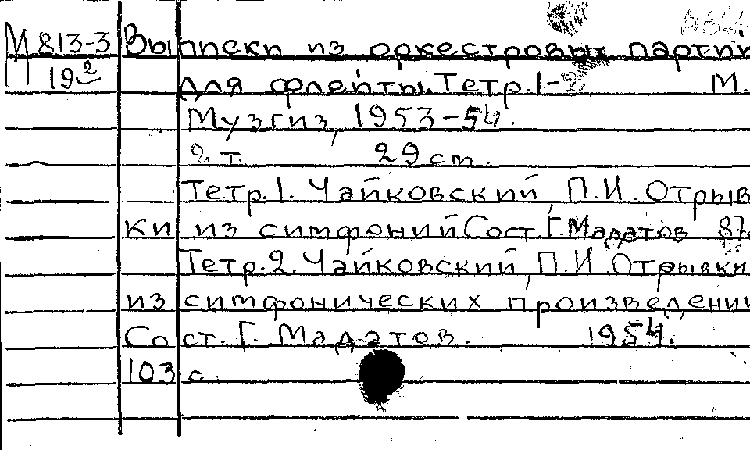 М 813-3 Выписки из оркестровых партий
П 19² для флейты. Тетр. 1-2 М.
Музгиз, 1953-54.
2 т. 29 см.
Тетр. 1. Чайковский, П.И. Отрыв
ки из симфоний Сост. Г. Мадатов 87
Тетр. 2. Чайковский, П.И. Отрывки
из симфонических произведений
Сост. Г. Мадатов. 1954.
103 с.